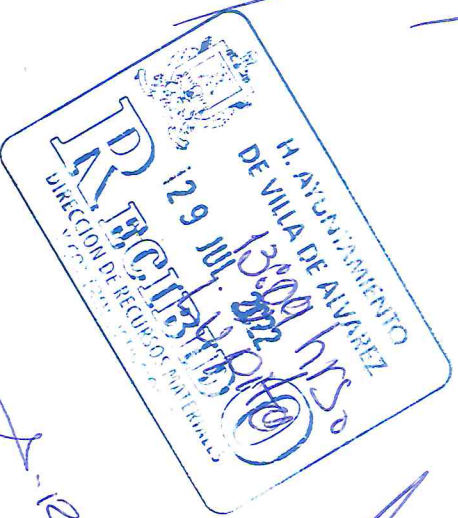 H. AYUNTAMIENTO
DE VILLA DE ALVAREZ
29 JUL 2022
13:09 hrs.
RECIBIDO
DIRECCION DE RECURSOS MATERIALES